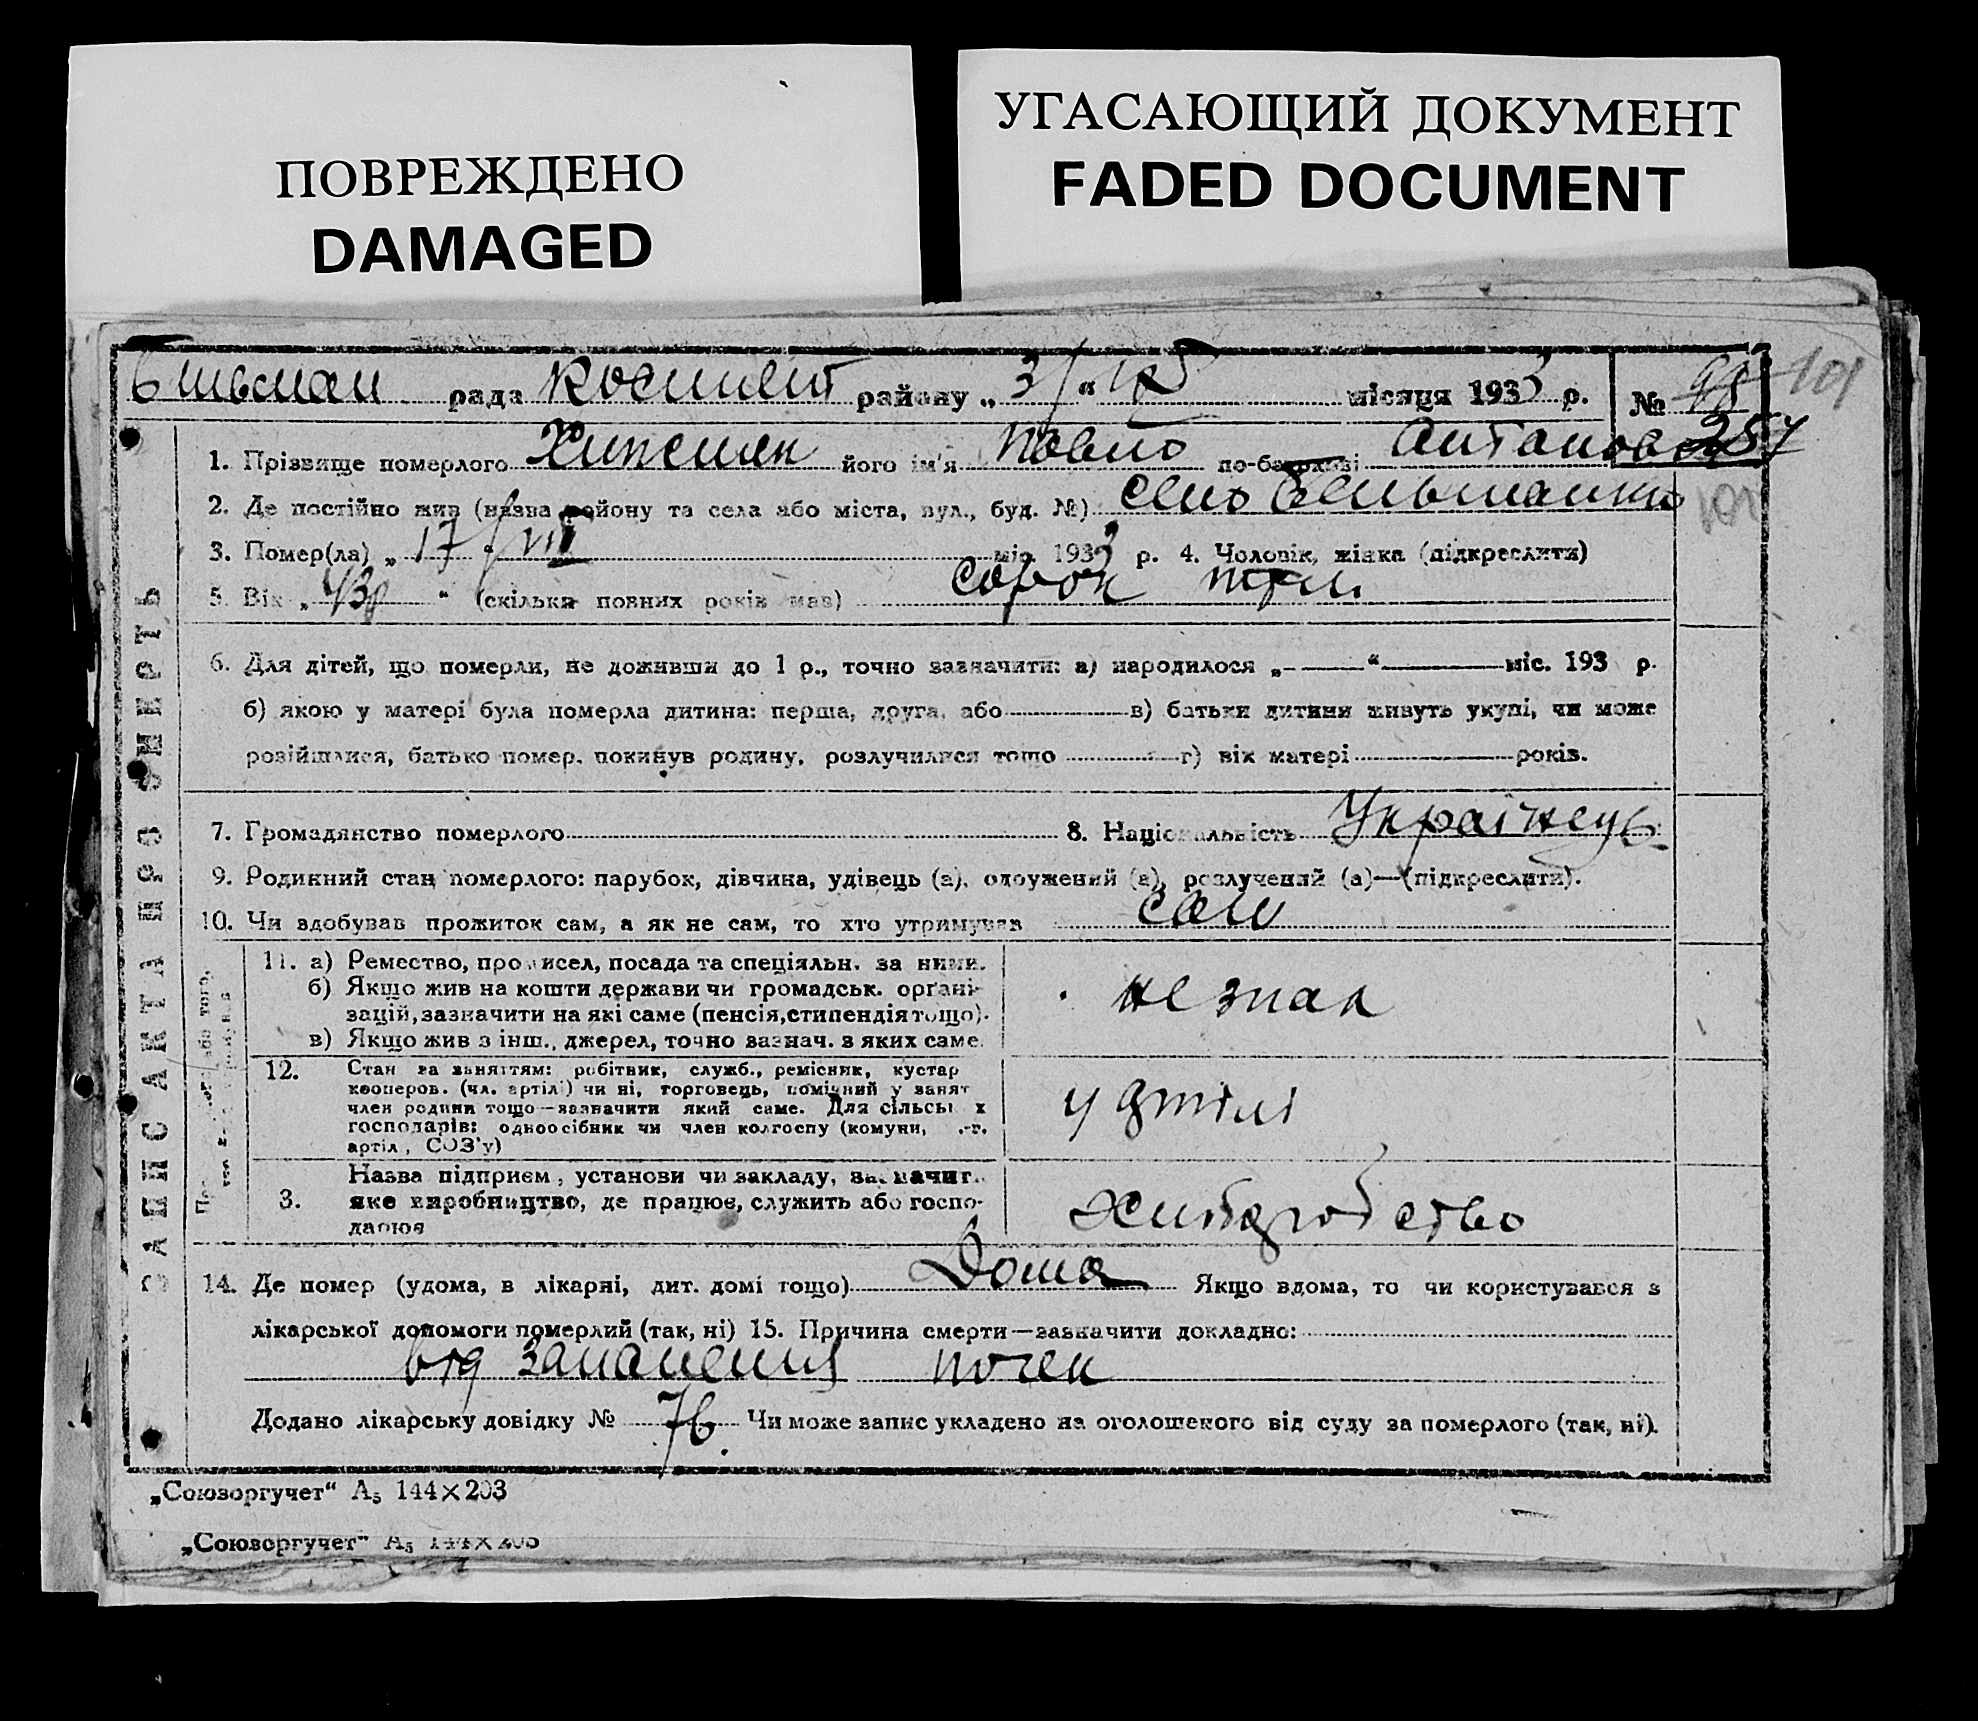 ПОВРЕЖДЕНО
DAMAGED
УГАСАЮЩИЙ ДОКУМЕНТ
FADED DOCUMENT
рада район у „ 3 “ місяця 1933 р. № 98 101
257
1. Прізвище померлого його ім'я Павло по-батькові
2. Де постійно жив (назва району та села або міста, вул., буд. №) село
101
3. Помер(ла) „ 17 “ VIII міс. 1933 р. 4. Чоловік, жінка (підкреслити)
5. Вік „ 43 “ (скільки повних років мав) сорок три
6. Для дітей, що померли, не доживши до 1 р., точно зазначити: а) народилося „ — “ — міс. 193 р.
б) якою у матері була померла дитина: перша, друга, або — в) батьки дитини живуть укупі, чи може
розійшлися, батько помер, покинув родину, розлучилися тощо — г) вік матері — років.
7. Громадянство померлого 8. Національність Українець
9. Родинний стан померлого: парубок, дівчина, удівець (а), одружений (а), розлучений (а)—(підкреслити).
10. Чи здобував прожиток сам, а як не сам, то хто утримував сам
11. а) Ремество, промисел, посада та спеціяльн. за ними.
б) Якщо жив на кошти держави чи громадськ. органі-
зацій, зазначити на які саме (пенсія, стипендія тощо).
в) Якщо жив з інш., джерел, точно вазнач. з яких саме.
не знал
12. Стан за заняттям: робітник, служб., ремісник, кустар
кооперов. (чл. артілі) чи ні, торговець, помічний у занят
член родини тощо—зазначити який саме. Для сільськ х
господарів: одноосібник чи член колгоспу (комуни, .-г.
артіл , СОЗ'у)
у артілі
3. Назва підприєм, установи чи закладу, зазначит.
яке виробництво, де працює, служить або госпо-
дарює
Хліборобство
14. Де помер (удома, в лікарні, дит. домі тощо) Дома Якщо вдома, то чи користувався з
лікарської допомоги померлий (так, ні) 15. Причина смерти—зазначити докладно:
від запалення почек
Додано лікарську довідку № 76. Чи може запис укладено на оголошеного від суду за померлого (так, ні).
ЗАПИС АКТА ПРО СМЕРТЬ
„Союзоргучет“ А5 144×203
„Союзоргучет“ А5 144×203